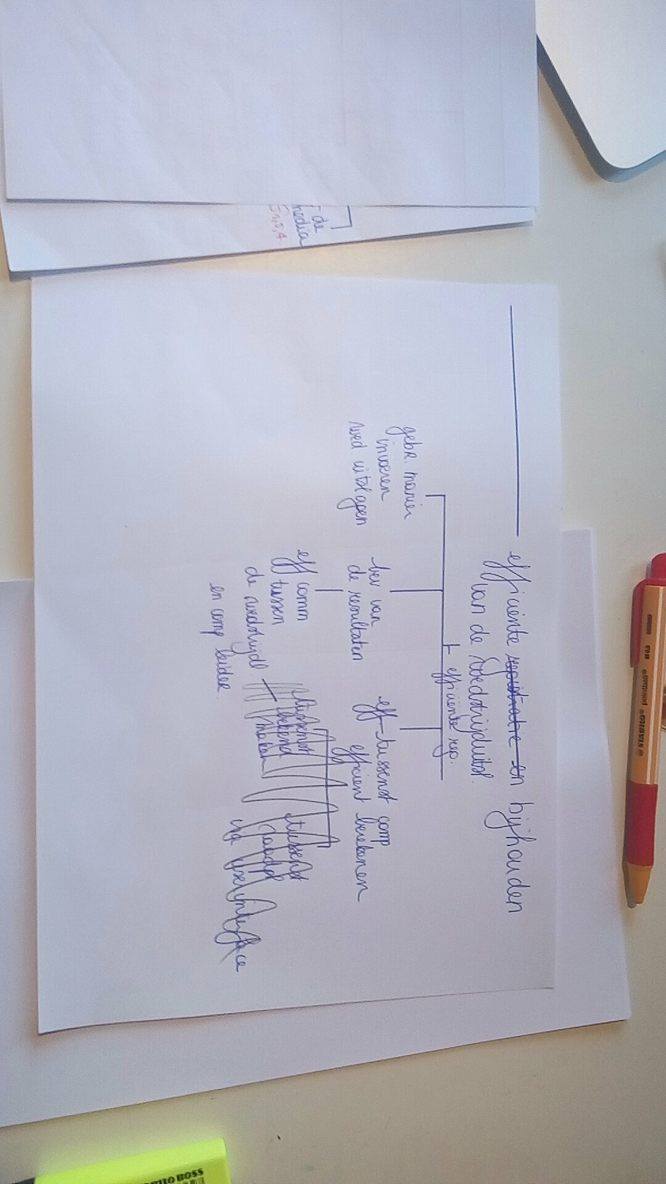 efficiënte registratie en bijhouden
van de wedstrijduitsl.
efficiënte reg.
gebr. manier
invoeren
wed uitslagen
bev van
de resultaten
eff comm
tussen
de wedstrijdl
en comp leider
eff tussenst comp
efficient berekenen
tussenst
bekend
maken
tussenst
raadpl
via userinterface
de
media
STABILO
BOSS